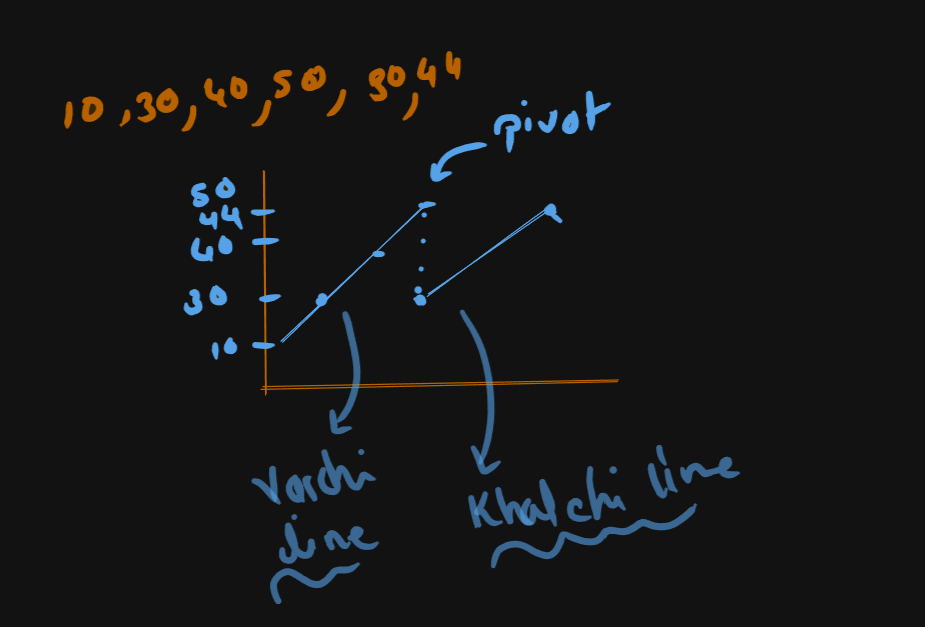 10, 30, 40, 50, 30, 44
pivot
50
44
40
30
10
Varchi
line
Khalchi line